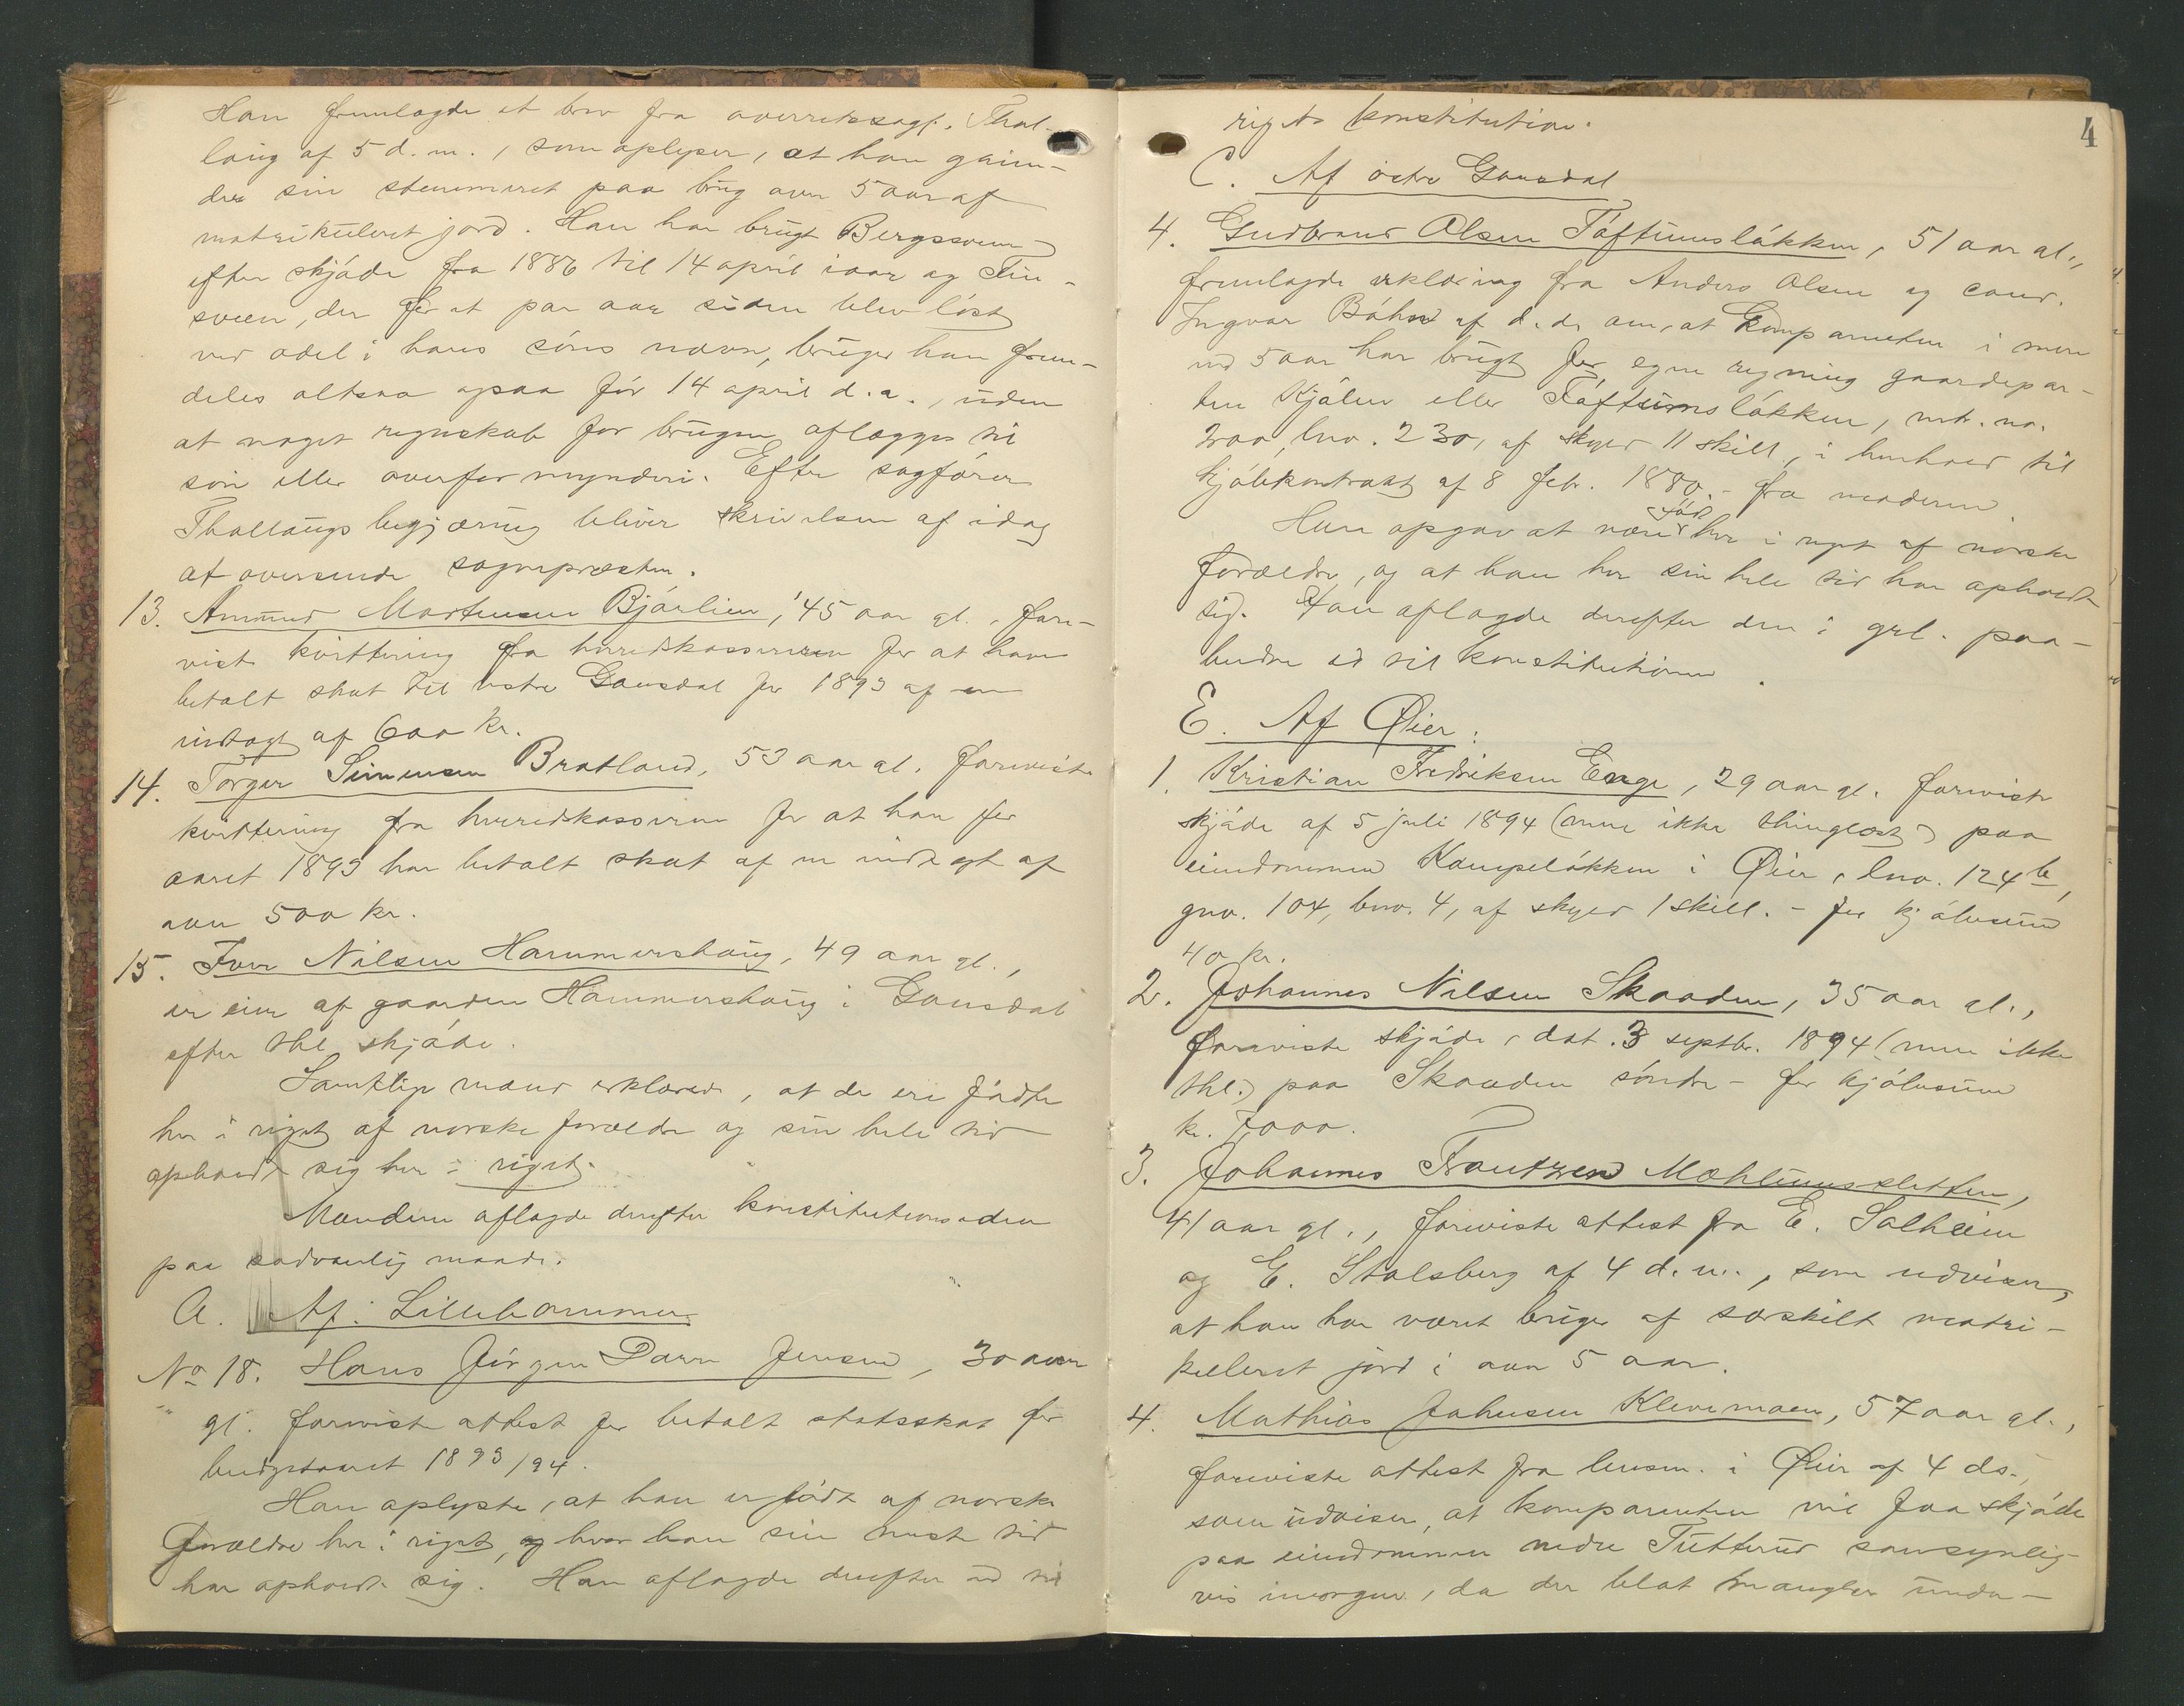 Han fremlagde et brev fra overretssagf. Thal-
laug af 5 d.m., som oplyser, at han grun-
der sin stemmeret paa brug over 5 aar af
matrikuleret jord. Han har brugt Bergssveen
efter skjøde fra 1886 til 14 april iaar og
sveen, der for et par aar siden blev løst
ved odel i hans søns navn, bruger han frem-
deles altsaa ogsaa før 14 april d.a., uden
at noget regnskab for brugen aflægges til
søn eller overformynderi. Efter sagfører
Thallaugs begjæring bliver skrivelsen af idag
at oversende sognepræsten.
13. Amund Martensen Bjørlien, 45 aar gl., fore-
viste kvittering fra herredskassereren for at have
betalt skat til vestre Gausdal for 1893 af en
indtægt af 600 kr.
14. Torger Simensen Bratland, 53 aar gl. foreviste
kvittering fra herredskassereren for at han for
aaret 1893 har betalt skat af en indtægt af
over 500 kr.
15. Iver Nilsen Hammershaug, 49 aar gl.,
er eier af gaarden Hammershaug i Gausdal
efter thl. skjøde.
Samtlige mænd erklærede, at de ere fødte
her i riget af norske forældre og sin hele tid
opholdt sig her i riget.
Mændene aflagde derefter konstitutionseden
paa sædvanlig maade.
A. Af Lillehammer
No 18. Hans Jørgen Darre Jensen, 30 aar
gl. foreviste attest for betalt statsskat for
budgetaaret 1893/94.
Han oplyste, at han er født af norske
forældre her i riget, og hvor han sin meste tid
har opholdt sig. Han aflagde derefter ed til
4
rigets konstitution.
C. Af østre Gausdal
4. Gudbrand Olsen Tøftumsløkken, 51 aar gl.,
fremlagde erklæring fra Anders Olsen og cand.
Ingvar Bøhn af d.d. om, at komparenten i mere
end 5 aar har brugt for egen regning gaardepar-
ten Kjølen eller Tøftumsløkken, mtr. no.
200, lno. 230, af skyld 11 skill., i henhold til
kjøbekontrakt af 8 febr. 1880 - fra moderen.
Han opgav at være født her i riget af norske
forældre, og at han her sin hele tid har opholdt
sig. Han aflagde derefter den i grl. paa-
budne ed til konstitutionen.
E. Af Øier:
1. Kristian Fredriksen Enge, 29 aar gl. foreviste
skjøde af 5 juli 1894 (men ikke thinglæst) paa
eiendommen Kampeløkken i Øier, lno. 124b,
gno. 104, bno. 4, af skyld 1 skill. - for kjøbesum
40 kr.
2. Johannes Nilsen Skaaden, 35 aar gl.,
foreviste skjøde, dat. 3 septbr. 1894 (men ikke
thl.) paa Skaaden søndre - for kjøbesum
kr. 7000.
3. Johannes Frantzen Mæhlumssletten,
41 aar gl., foreviste attest fra E. Solheim
og E. Stalsberg af 4 d.m., som udviser,
at han har været bruger af særskilt matri-
kuleret jord i over 5 aar.
4. Mathias Johnsen Klevemoen, 57 aar gl.,
foreviste attest fra lensm. i Øier af 4 ds.,
som udviser, at komparenten vil faa skjøde
paa eiendommen nedre Tutterud sansynlig-
vis imorgen, da der blot mangler under-